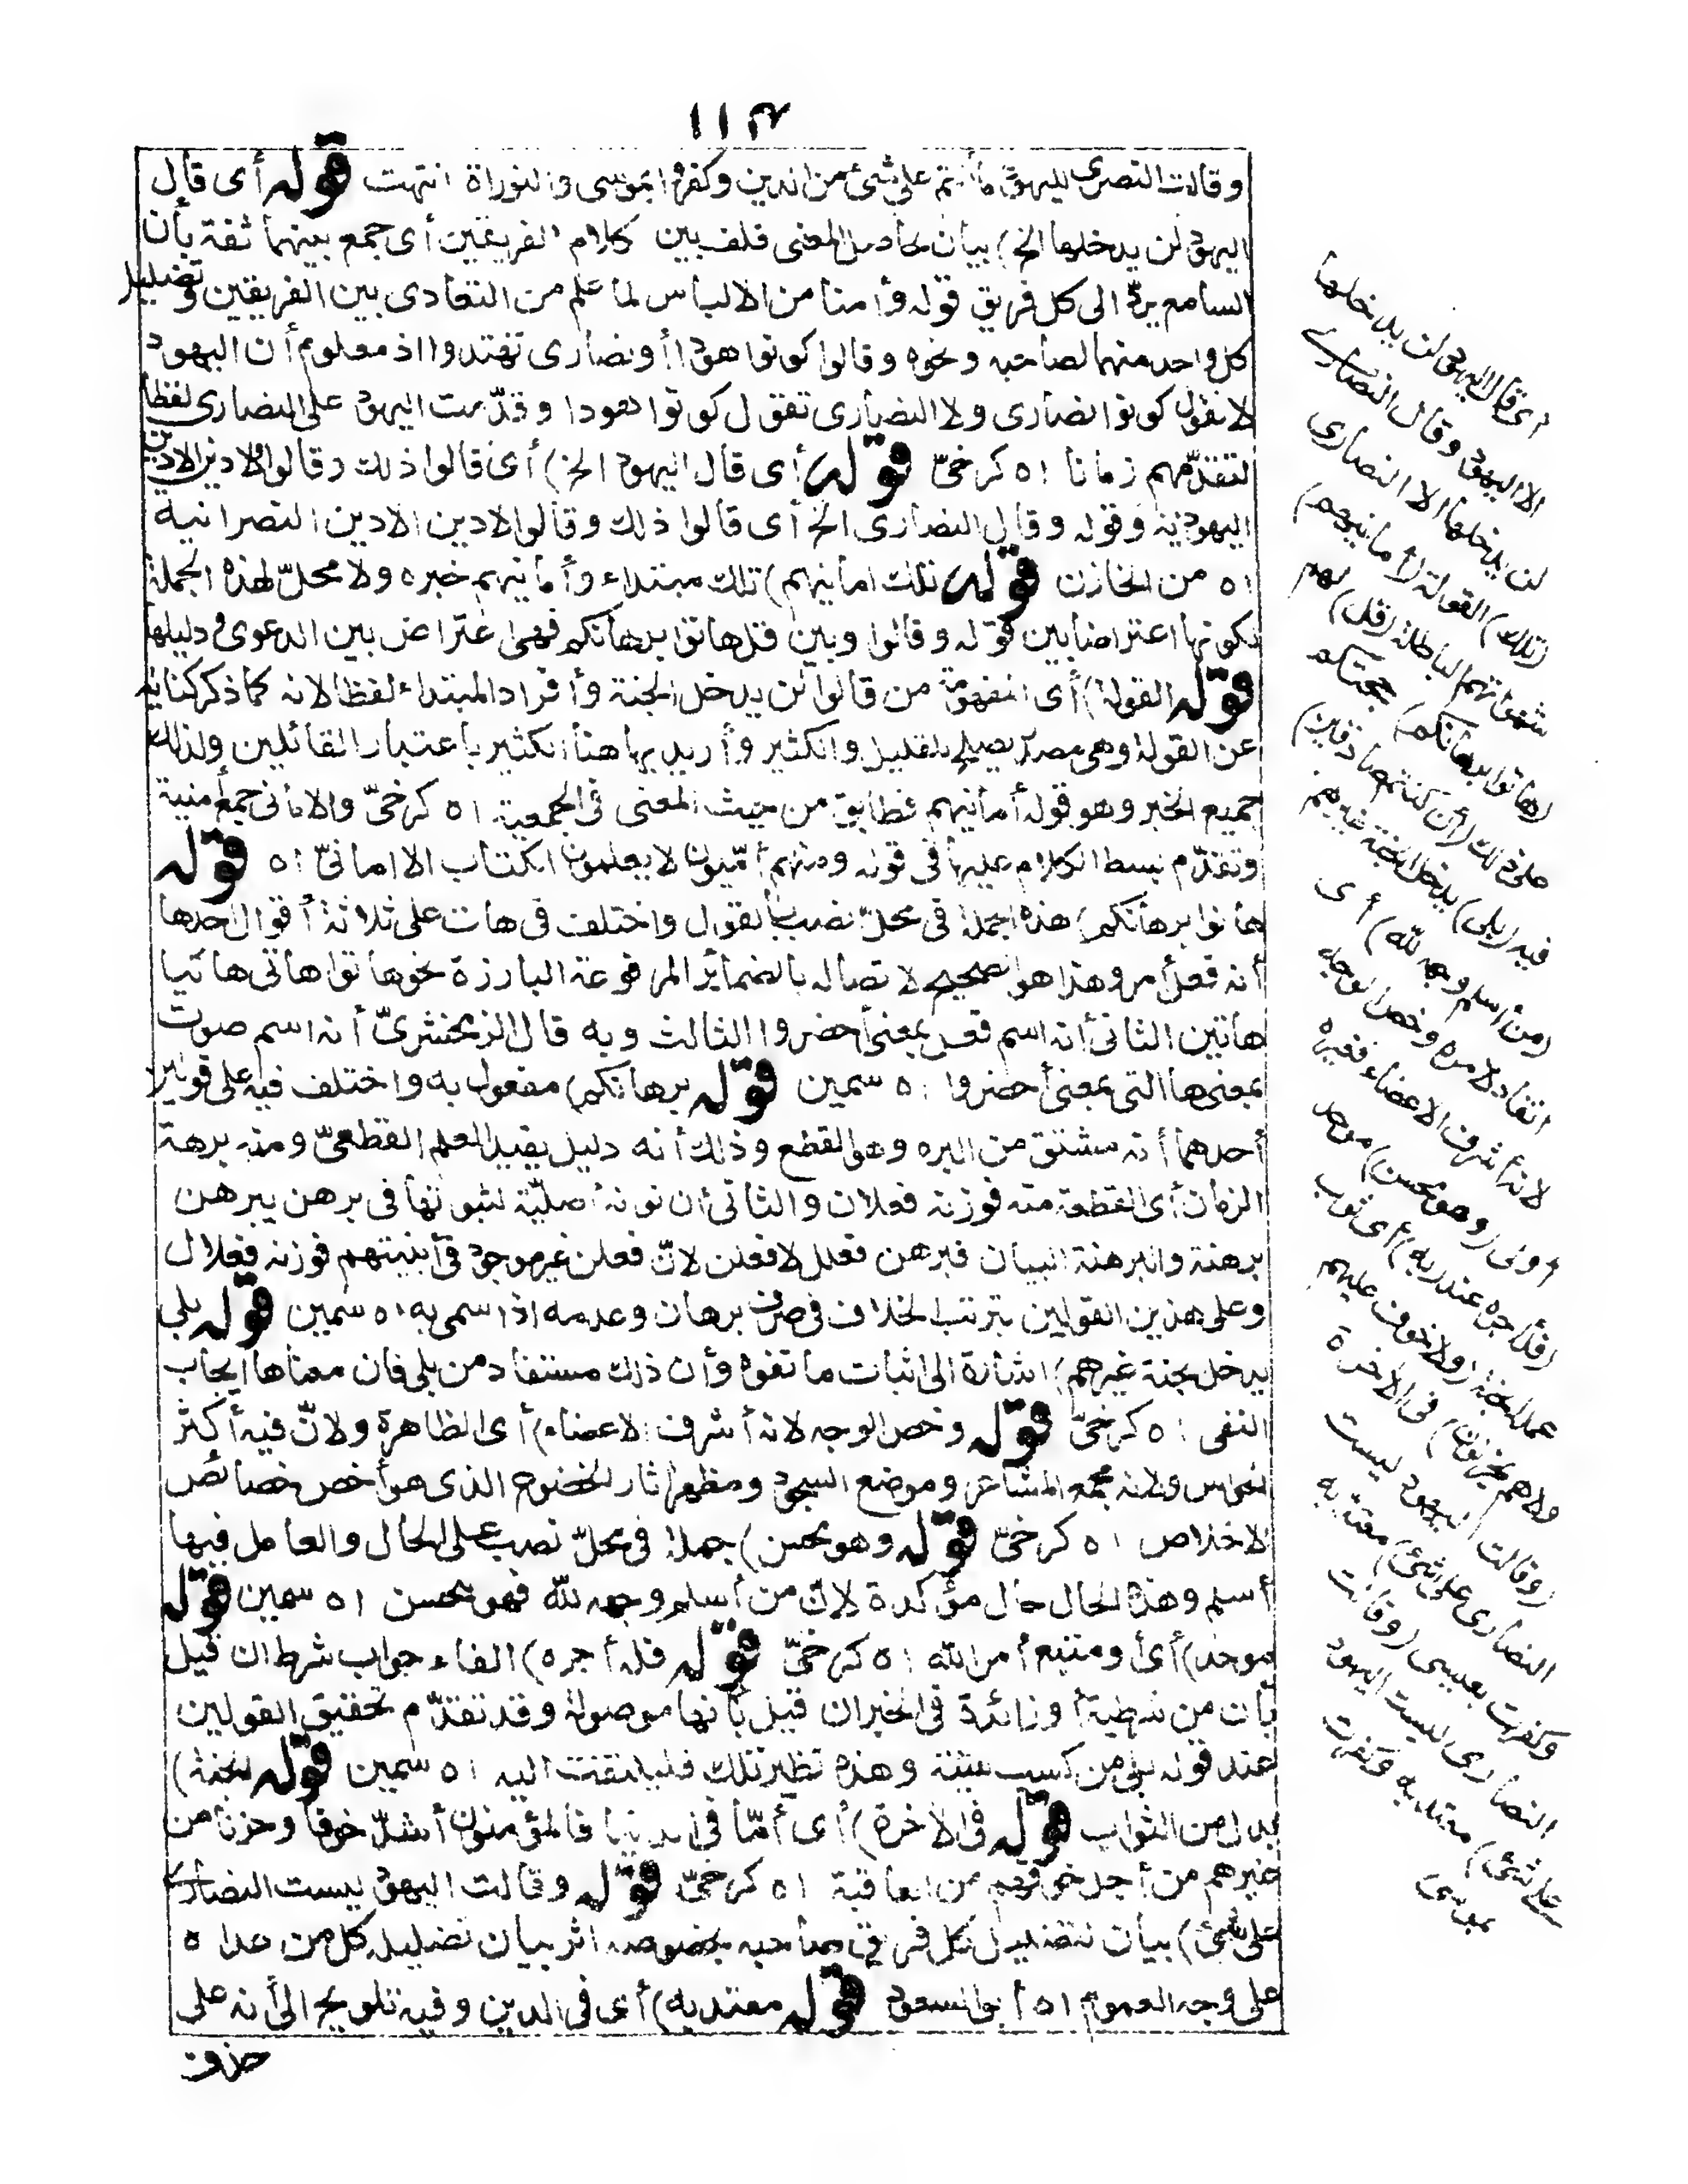 ١١٣
وقالت النصرى لليهود ما أنتم على شئ من الدين وكفروا بموسى والتوراة انتهت قوله أى قال
اليهود لن يدخلها الخ) بيان لحاصل المعنى فلف بين كلام الفريقين أى جمع بينهما ثقة بأن
السامع يردّ الى كل فريق قوله وأمنا من الالباس لما علم من التعادى بين الفريقين وتضليل
كل واحد منهما لصاحبه ونحوه وقالوا كونوا هودا أو نصارى تهتدوا اذ معلوم أن اليهود
لا تقول كونوا نصارى ولا النصارى تقول كونوا هودا وقدّمت اليهود على النصارى لفظا
لتقدّمهم زمانا اه كرخىّ قوله أى قال اليهود الخ) أى قالوا ذلك وقالوا لا دين الا دين
اليهودية وقوله وقال النصارى الخ أى قالوا ذلك وقالوا لا دين الا دين النصرانية
اه من الخازن قوله تلك امانيهم) تلك مبتداء وأمانيهم خبره ولا محلّ لهذه الجملة
لكونها اعتراضا بين قوله وقالوا وبين قل هاتوا برهانكم فهى اعتراض بين الدعوى ودليلها
قوله القولة) أى المفهومة من قالوا لن يدخل الجنة وأفراد المبتداء لفظا لانه كما ذكر كناية
عن القولة وهى مصدر يصلح للقليل والكثير وأريد بها هنا الكثير باعتبار القائلين ولذلك
جميع الخبر وهو قوله أمانيهم فطابق من حيث المعنى فى الجمعية اه كرخىّ والامانى جمع أمنية
وتقدّم بسط الكلام عليها فى قوله ومنهم أمّيون لا يعلمون الكتاب الا امانىّ اه قوله
هاتوا برهانكم) هذه الجملة فى محلّ نصب بالقول واختلف فى هات على ثلاثة أقوال احدها
أنه فعل أمر وهذا هو الصحيح لاتصاله بالضمائر المرفوعة البارزة نحو هاتوا هاتى هاتيا
هاتين الثانى أنه اسم فعل بمعنى أحضروا الثالث وبه قال الزمخشرىّ أنه اسم صوت
بمعنى ها التى بمعنى أحضروا اه سمين قوله برهانكم) مفعول به واختلف فيه على قولين
أحدهما أنه مشتق من البره وهو القطع وذلك أنه دليل يفيد العلم القطعىّ ومنه برهة
الزمان أى القطعة منه فوزنه فعلان والثانى أن نونه أصليّة لثبوتها فى برهن يبرهن
برهنة والبرهنة البيان فبرهن فعلل لا فعلن لانّ فعلن غير موجود فى أبنيتهم فوزنه فعلال
وعلى هذين القولين يترتب الخلاف فى صرف برهان وعدمه اذا سمى به اه سمين قوله بلى
يدخل الجنة غيرهم) اشارة الى اثبات ما نفوه وأن ذلك مستفاد من بلى فان معناها ايجاب
النفى اه كرخىّ قوله وخص الوجه لانه أشرف الاعضاء) أى الظاهرة ولانّ فيه أكثر
الحواس ولانه مجمع المشاعر وموضع السجود ومظهر آثار الخضوع الذى هو أخص خصائص
الاخلاص اه كرخىّ قوله وهو محسن) جملة فى محلّ نصب على الحال والعامل فيها
أسلم وهذه الحال حال مؤكدة لانّ من أسلم وجهه لله فهو محسن اه سمين قوله
موحد) أى أو متبع أمر الله اه كرخىّ قوله فله أجره) الفاء جواب شرط ان قيل
بأن من شرطية أو زائدة فى الخبر ان قيل بأنها موصولة وقد تقدّم تحقيق القولين
عند قوله بلى من كسب سيئة وهذه نظير تلك فليلتفت اليه اه سمين قوله الجنة)
بدل من الثواب قوله فى الآخرة) أى أمّا فى الدنيا فالمؤمنون أشدّ خوفا وحزنا من
غيرهم من أجل خوفهم من العاقبة اه كرخىّ قوله وقالت اليهود ليست النصارى
على شئ) بيان لتضليل كل فريق صاحبه بخصوصه اثر بيان تضليل كل من عداه
على وجه العموم اه أبو السعود قوله معتد به) أى فى الدين وفيه تلويح الى أنه على
حذف
أى قال اليهود لن يدخلها
الا اليهود وقال النصارى
لن يدخلها الا النصارى
(تلك) القولة (أمانيهم)
شهواتهم الباطلة (قل) لهم
(هاتوا برهانكم) حجتكم
على ذلك (ان كنتم صادقين)
فيه (بلى) يدخل الجنة غيرهم
(من أسلم وجهه لله) أى
انقاد لامره وخص الوجه
لانه أشرف الاعضاء فغيره
أولى (وهو محسن) موحد
(فله أجره عند ربه) أى ثواب
عمله الجنة (ولا خوف عليهم
ولا هم يحزنون) فى الآخرة
(وقالت اليهود ليست
النصارى على شئ) معتد به
وكفرت بعيسى (وقالت
النصارى ليست اليهود
على شئ) معتد به وكفرت
بموسى